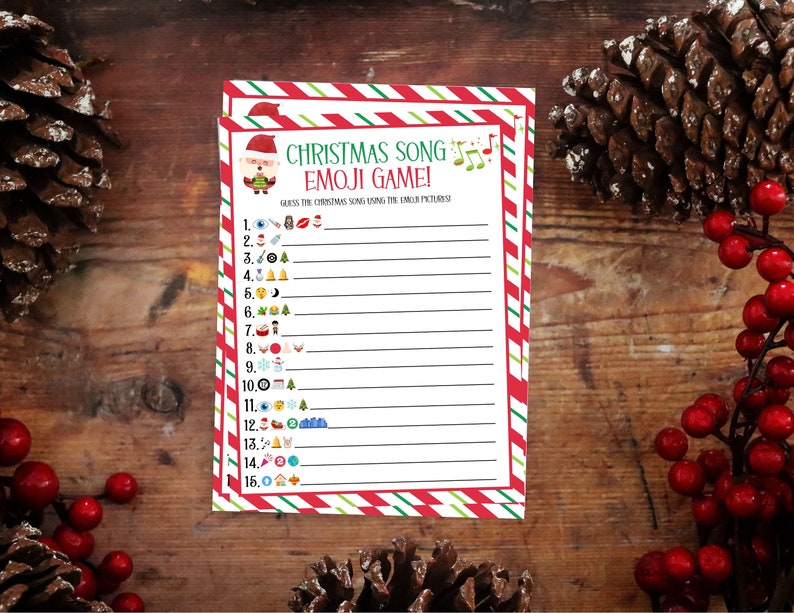 CHRISTMAS SONG
EMOJI GAME!
GUESS THE CHRISTMAS SONG USING THE EMOJI PICTURES!
1. 👁️🪚👩‍👧💋🎅
2. 🎅🍼
3. 🎸🎱🎄
4. 🔔🔔
5. 🤫🌙
6. 🌿😂🎄
7. 🥁
8. 🔴👃
9. ❄️⛄
10. 🎄
11. 👁️❄️🎄
12. 🎅🛷2️⃣🏙️
13. 🎶🔔🤘
14. 🎉2️⃣🌎
15. ⬆️🏠